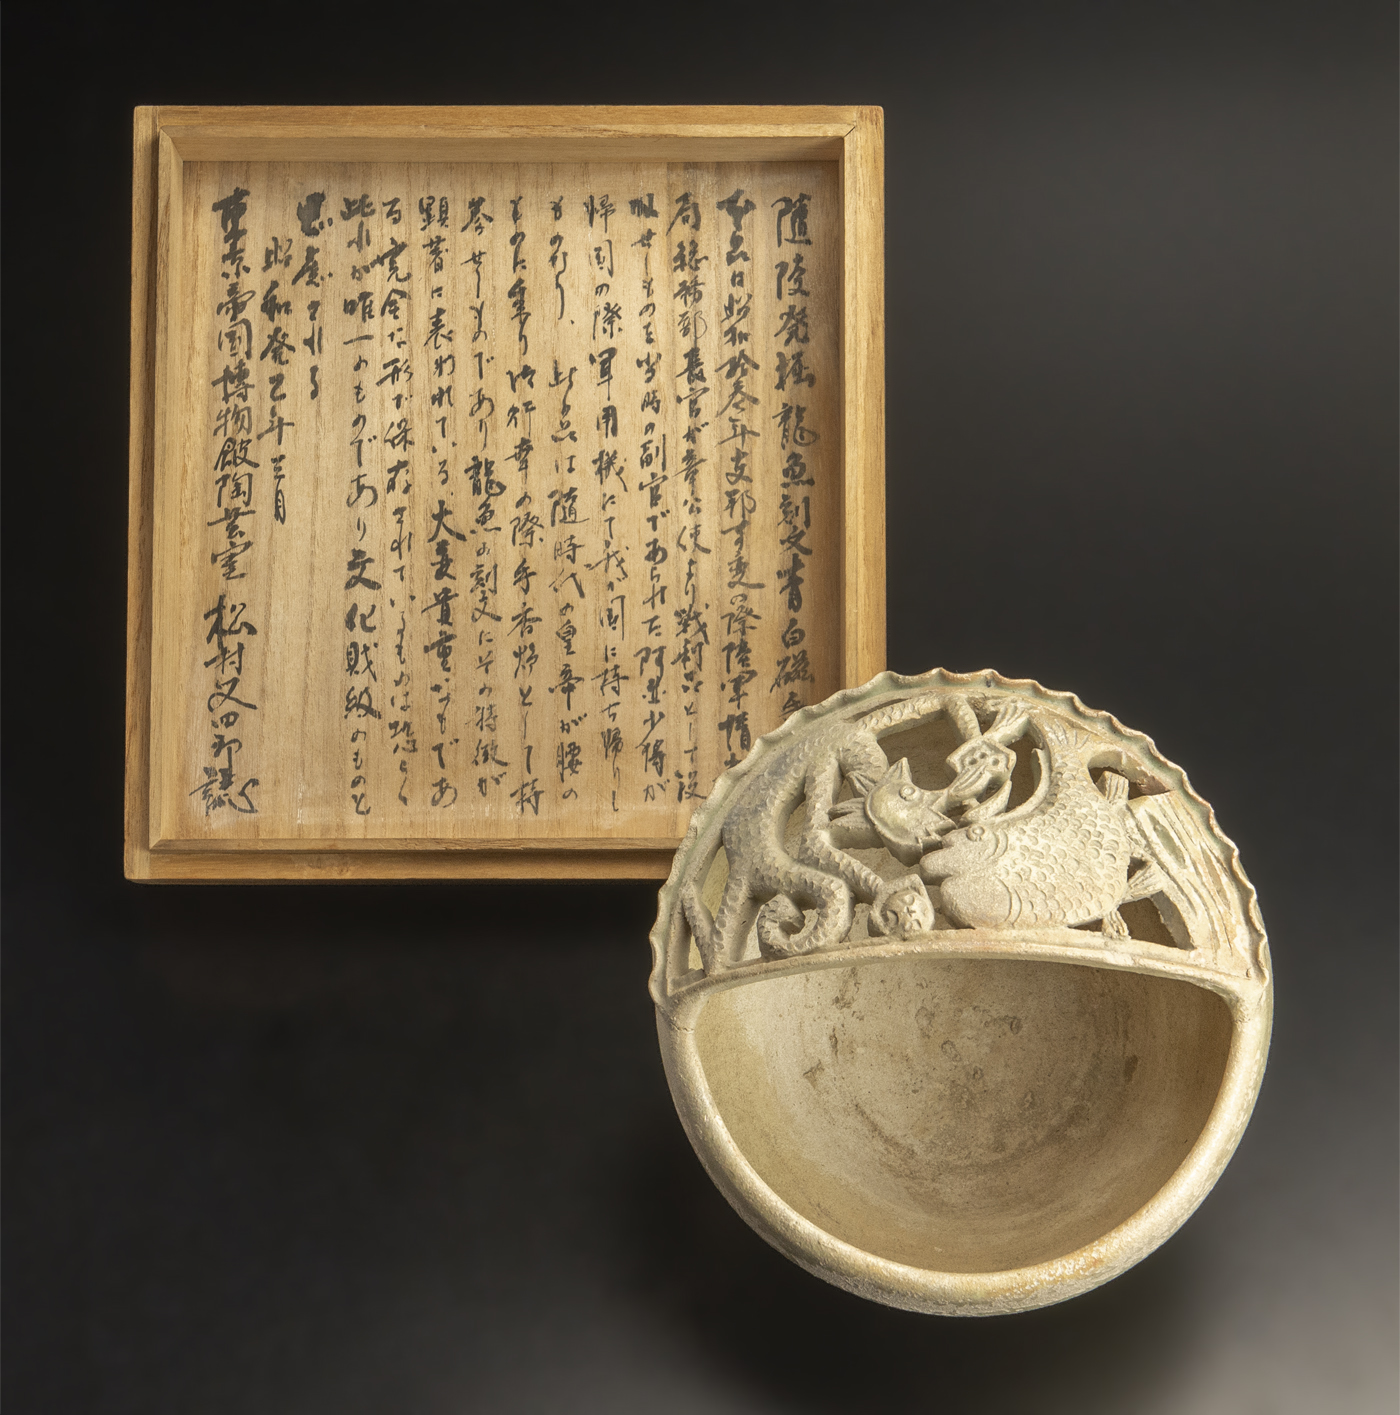 随陵発掘龍魚刻文青白磁
本品は昭和拾参年支那事変の際陸軍情
局総務部長官が章公使より戦利品として没
収せしものを当時の副官であられた阿並少将が
帰国の際軍用機にて我が国に持ち帰りし
ものなり、此の品は随時代の皇帝が腰の
ものに乗り御行幸の際手香炉として持
参せしものであり龍魚の刻文にその特徴が
顕著に表われている、大変貴重なものであ
る完全な形で保存されているものは恐らく
此れが唯一のものであり文化財級のものと
思慮される
昭和癸乙年三月
東京帝国博物館陶芸室 松村又四郎誌